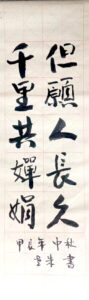 但願人長久
千里共嬋娟
甲辰年中秋
書